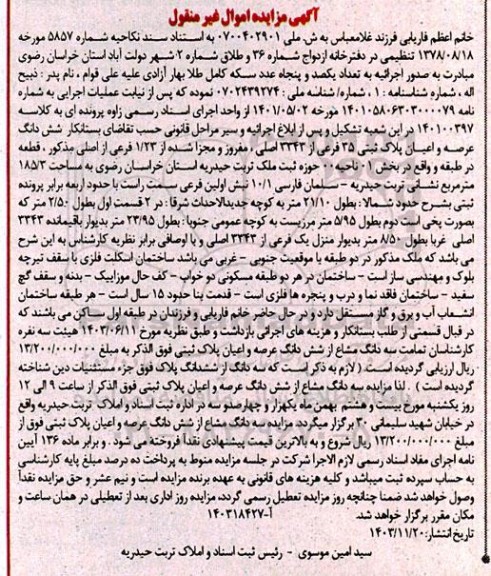 آگهی مزایده اموال غیر منقول
خانم اعظم فاریابی فرزند غلامعباس به ش. ملی ۰۷۰۰۴۰۲۹۰۱ به استناد سند نکاحیه شماره ۵۸۵۷ مورخه
۱۳۷۸/۰۸/۱۸ تنظیمی در دفترخانه ازدواج شماره ۳۶ و طلاق شماره ۲ شهر دولت آباد استان خراسان رضوی
مبادرت به صدور اجرائیه به تعداد یکصد و پنجاه عدد سکه کامل طلا بهار آزادی علیه علی قوام ، نام پدر : ذبیح
اله ، شماره شناسنامه : ۱ ، شماره/ شناسه ملی : ۰۷۰۲۴۳۹۲۷۴ نموده که پس از نیابت عملیات اجرایی به شماره
نامه ۱۴۰۱۰۵۸۰۶۳۰۳۰۰۰۰۷۹ مورخه ۱۴۰۱/۰۵/۰۲ از واحد اجرای اسناد رسمی زاوه پرونده ای به کلاسه
۱۴۰۱۰۰۳۹۷ در این شعبه تشکیل و پس از ابلاغ اجرائیه و سیر مراحل قانونی حسب تقاضای بستانکار شش دانگ
عرصه و اعیان پلاک ثبتی ۳۵ فرعی از ۳۳۴۳ اصلی ، مفروز و مجزا شده از ۱/۲۳ فرعی از اصلی مذکور ، قطعه
در طبقه و واقع در بخش ۰۱ ناحیه ۰۱ حوزه ثبت ملک تربت حیدریه استان خراسان رضوی به مساحت ۱۸۵/۳
مترمربع نشانی تربت حیدریه - سلمان فارسی ۱۰/۱ نبش اولین فرعی سمت راست با حدود اربعه برابر پرونده
ثبتی بشرح حدود شمالا : بطول ۲۱/۱۰ متر به کوچه جدیدالاحداث شرقا : در ۲ قسمت اول بطول ۲/۵۰ متر که
بصورت پخی است دوم بطول ۵/۹۵ متر مرزیست به کوچه عمومی جنوبا : بطول ۲۳/۹۵ متر بدیوار باقیمانده ۳۳۴۳
اصلی غربا بطول ۸/۵۰ متر بدیوار منزل یک فرعی از ۳۳۴۳ اصلی و با اوصافی برابر نظریه کارشناس به این شرح
می باشد که ملک مذکور در دو طبقه با موقعیت جنوبی - غربی می باشد ساختمان اسکلت فلزی با سقف تیرچه
بلوک و مهندسی ساز است - ساختمان در هر دو طبقه مسکونی دو خواب - کف حال موزاییک - بدنه و سقف گچ
سفید - ساختمان فاقد نما و درب و پنجره ها فلزی است - قدمت بنا حدود ۱۵ سال است - هر طبقه ساختمان
انشعاب آب و برق و گاز مستقل دارد و در حال حاضر خانم فاریابی و فرزندان در طبقه اول ساکن می باشند که
در قبال قسمتی از طلب بستانکار و هزینه های اجرائی بازداشت و طبق نظریه مورخ ۱۴۰۳/۰۶/۱۱ هیئت سه نفره
کارشناسان تمامت سه دانگ مشاع از شش دانگ عرصه و اعیان پلاک ثبتی فوق الذکر به مبلغ ۱۳/۲۰۰/۰۰۰/۰۰۰
ریال ارزیابی گردیده است. ( لازم به ذکر است که سه دانگ از ششدانگ پلاک فوق جزء مستثنیات دین شناخته
گردیده است ) . لذا مزایده سه دانگ مشاع از شش دانگ عرصه و اعیان پلاک ثبتی فوق الذکر از ساعت ۹ الی ۱۲
روز یکشنبه مورخ بیست و هشتم بهمن ماه یکهزار و چهارصدو سه در اداره ثبت اسناد و املاک تربت حیدریه واقع
در خیابان شهید سلیمانی ۲۰ برگزار میگردد. مزایده سه دانگ مشاع از شش دانگ عرصه و اعیان پلاک ثبتی فوق از
مبلغ ۱۳/۲۰۰/۰۰۰/۰۰۰ ریال شروع و به بالاترین قیمت پیشنهادی نقداً فروخته می شود . و برابر ماده ۱۳۶ آیین
نامه اجرای مفاد اسناد رسمی لازم الاجرا شرکت در جلسه مزایده منوط به پرداخت ده درصد مبلغ پایه کارشناسی
به حساب سپرده ثبت میباشد و کلیه هزینه های قانونی به عهده برنده مزایده است و نیم عشر و حق مزایده نقداً
وصول خواهد شد ضمنا چنانچه روز مزایده تعطیل رسمی گردد، مزایده روز اداری بعد از تعطیلی در همان ساعت و
مکان مقرر برگزار خواهد شد. آ-۱۴۰۳۱۸۴۲۷
تاریخ انتشار:۱۴۰۳/۱۱/۲۰
سید امین موسوی - رئیس ثبت اسناد و املاک تربت حیدریه